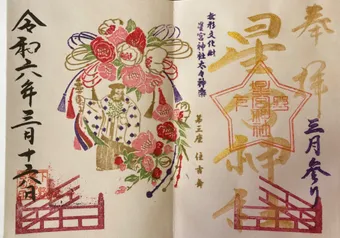 奉拝
三月参り
星宮神社
無形文化財
星宮神社太々神楽
第三座 住吉舞
令和六年三月十六日